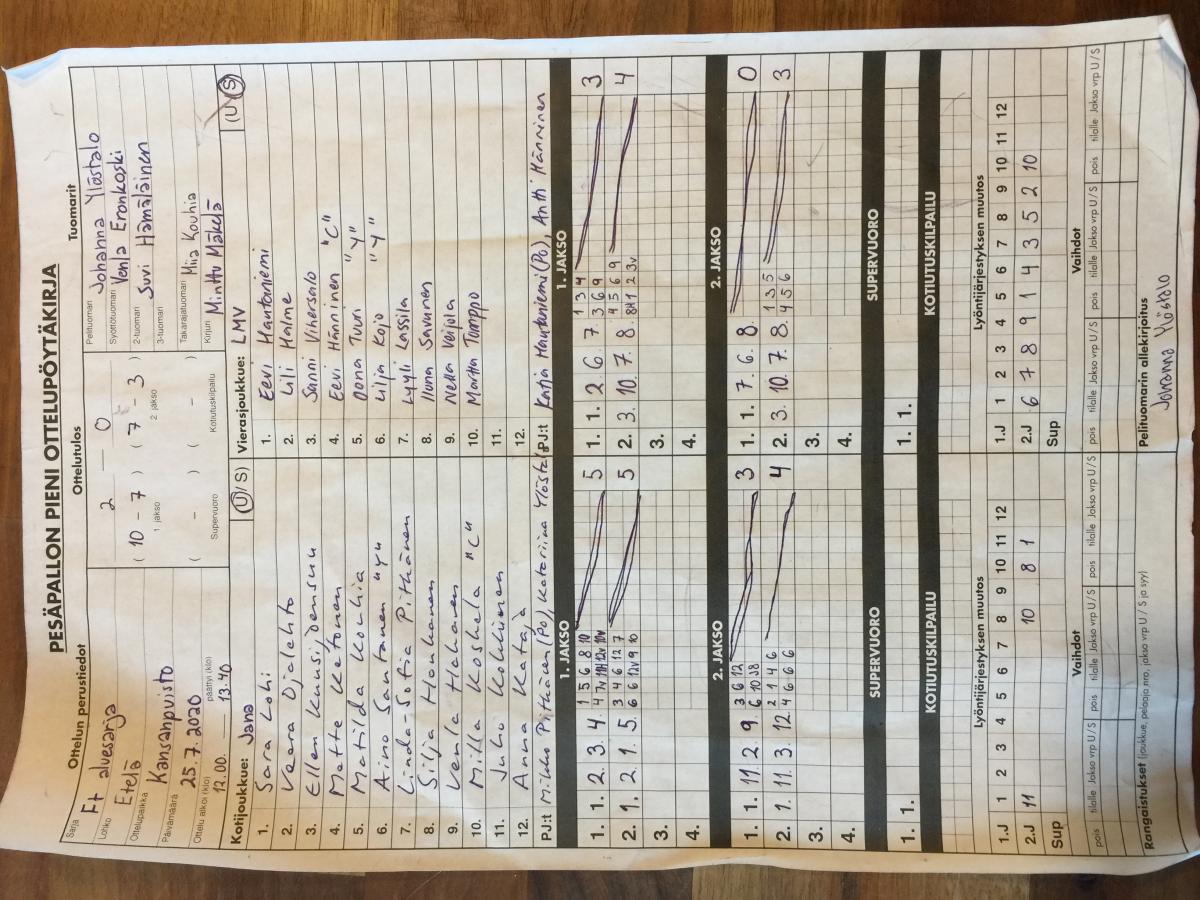 PESÄPALLON PIENI OTTELUPÖYTÄKIRJA
Ottelun perustiedot
Sarja
Ft aluesarja
Lohko
Etelä
Ottelupaikka
Kansanpuisto
Päivämäärä
25.7.2020
Ottelu alkoi (klo) päättyi (klo)
12.00 13.40
Ottelutulos
2 — 0
(10 - 7) (7 - 3)
1. jakso 2. jakso
( - ) ( - )
Supervuoro Kotiutuskilpailu
Tuomarit
Pelituomari Johanna Ylöstalo
Syöttötuomari Venla Eronkoski
2-tuomari Suvi Hämäläinen
3-tuomari
Takarajatuomari Miia Kouhia
Kirjuri Minttu Mäkelä
Kotijoukkue: Jana (U/S)
1. Sara Lohi
2. Veera Ojalehto
3. Ellen Kuusidensuu
4. Mette Ketonen
5. Matilda Kouhia
6. Aino Santanen "y"
7. Linda-Sofia Pitkänen
8. Silja Honkanen
9. Venla Hakanen
10. Milla Koskela "C"
11. Juho Kokkinen
12. Anna Kataja
PJ:t Mikko Pitkänen (Po), Katariina Ylöstalo
Vierasjoukkue: LMV (U/S)
1. Eevi Hautaniemi
2. Lili Halme
3. Sanni Vihersalo
4. Eevi Hänninen "C"
5. Oona Tuuri "Y"
6. Lilja Kojo "Y"
7. Lyyli Lassila
8. Iluna Savunen
9. Nella Veipla
10. Martta Tomppo
11.
12.
PJ:t Katja Hautaniemi (Po), Antti Hänninen
1. JAKSO
1. 1. 2. 3. 4. 1 5 6 8 10 5
4 7v 11H 12v 10v
2. 1. 2. 1. 5. 3 4 6 12 7 5
6 6 12v 9 10
3.
4.
1. JAKSO
1. 1. 2 6. 7. 1 3 4 3
3 6 9
2. 3. 10. 7. 8. 4 5 6 9 4
8H 1 2 3v
3.
4.
2. JAKSO
1. 1. 11. 2. 9. 3 6 12 3
6 10 38
2. 1. 11. 3. 12. 2 1 4 6 4
4 6 6 6
3.
4.
2. JAKSO
1. 1. 7. 6. 8. 0
2. 3. 10. 7. 8. 1 3 5 3
4 5 6
3.
4.
SUPERVUORO
1. 1.
SUPERVUORO
1. 1.
KOTIUTUSKILPAILU
KOTIUTUSKILPAILU
Lyöntijärjestyksen muutos
1.J 1 2 3 4 5 6 7 8 9 10 11 12
2.J 11 10 8 1
Sup
Lyöntijärjestyksen muutos
1.J 1 2 3 4 5 6 7 8 9 10 11 12
2.J 6 7 8 9 1 4 3 5 2 10
Sup
Vaihdot
pois tilalle Jakso vrp U / S pois tilalle Jakso vrp U / S pois tilalle Jakso vrp U / S
Vaihdot
pois tilalle Jakso vrp U / S pois tilalle Jakso vrp U / S pois tilalle Jakso vrp U / S
Rangaistukset (joukkue, pelaaja nro, jakso vrp U / S ja syy)
Pelituomarin allekirjoitus
Johanna Ylöstalo